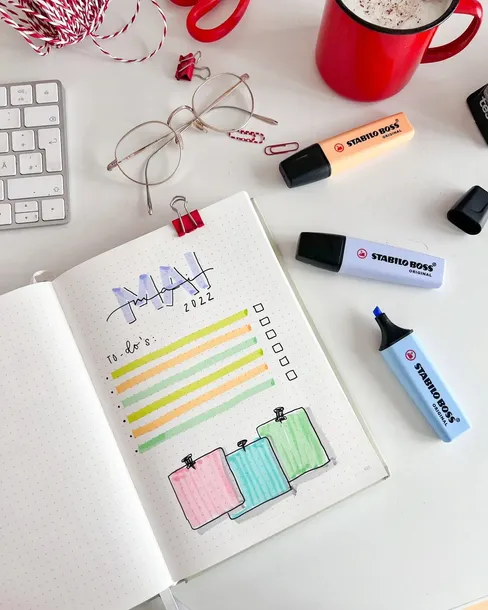 STABILO BOSS
ORIGINAL
STABILO BOSS
ORIGINAL
STABILO BOSS
ORIGINAL
MAI
2022
TO-do's: